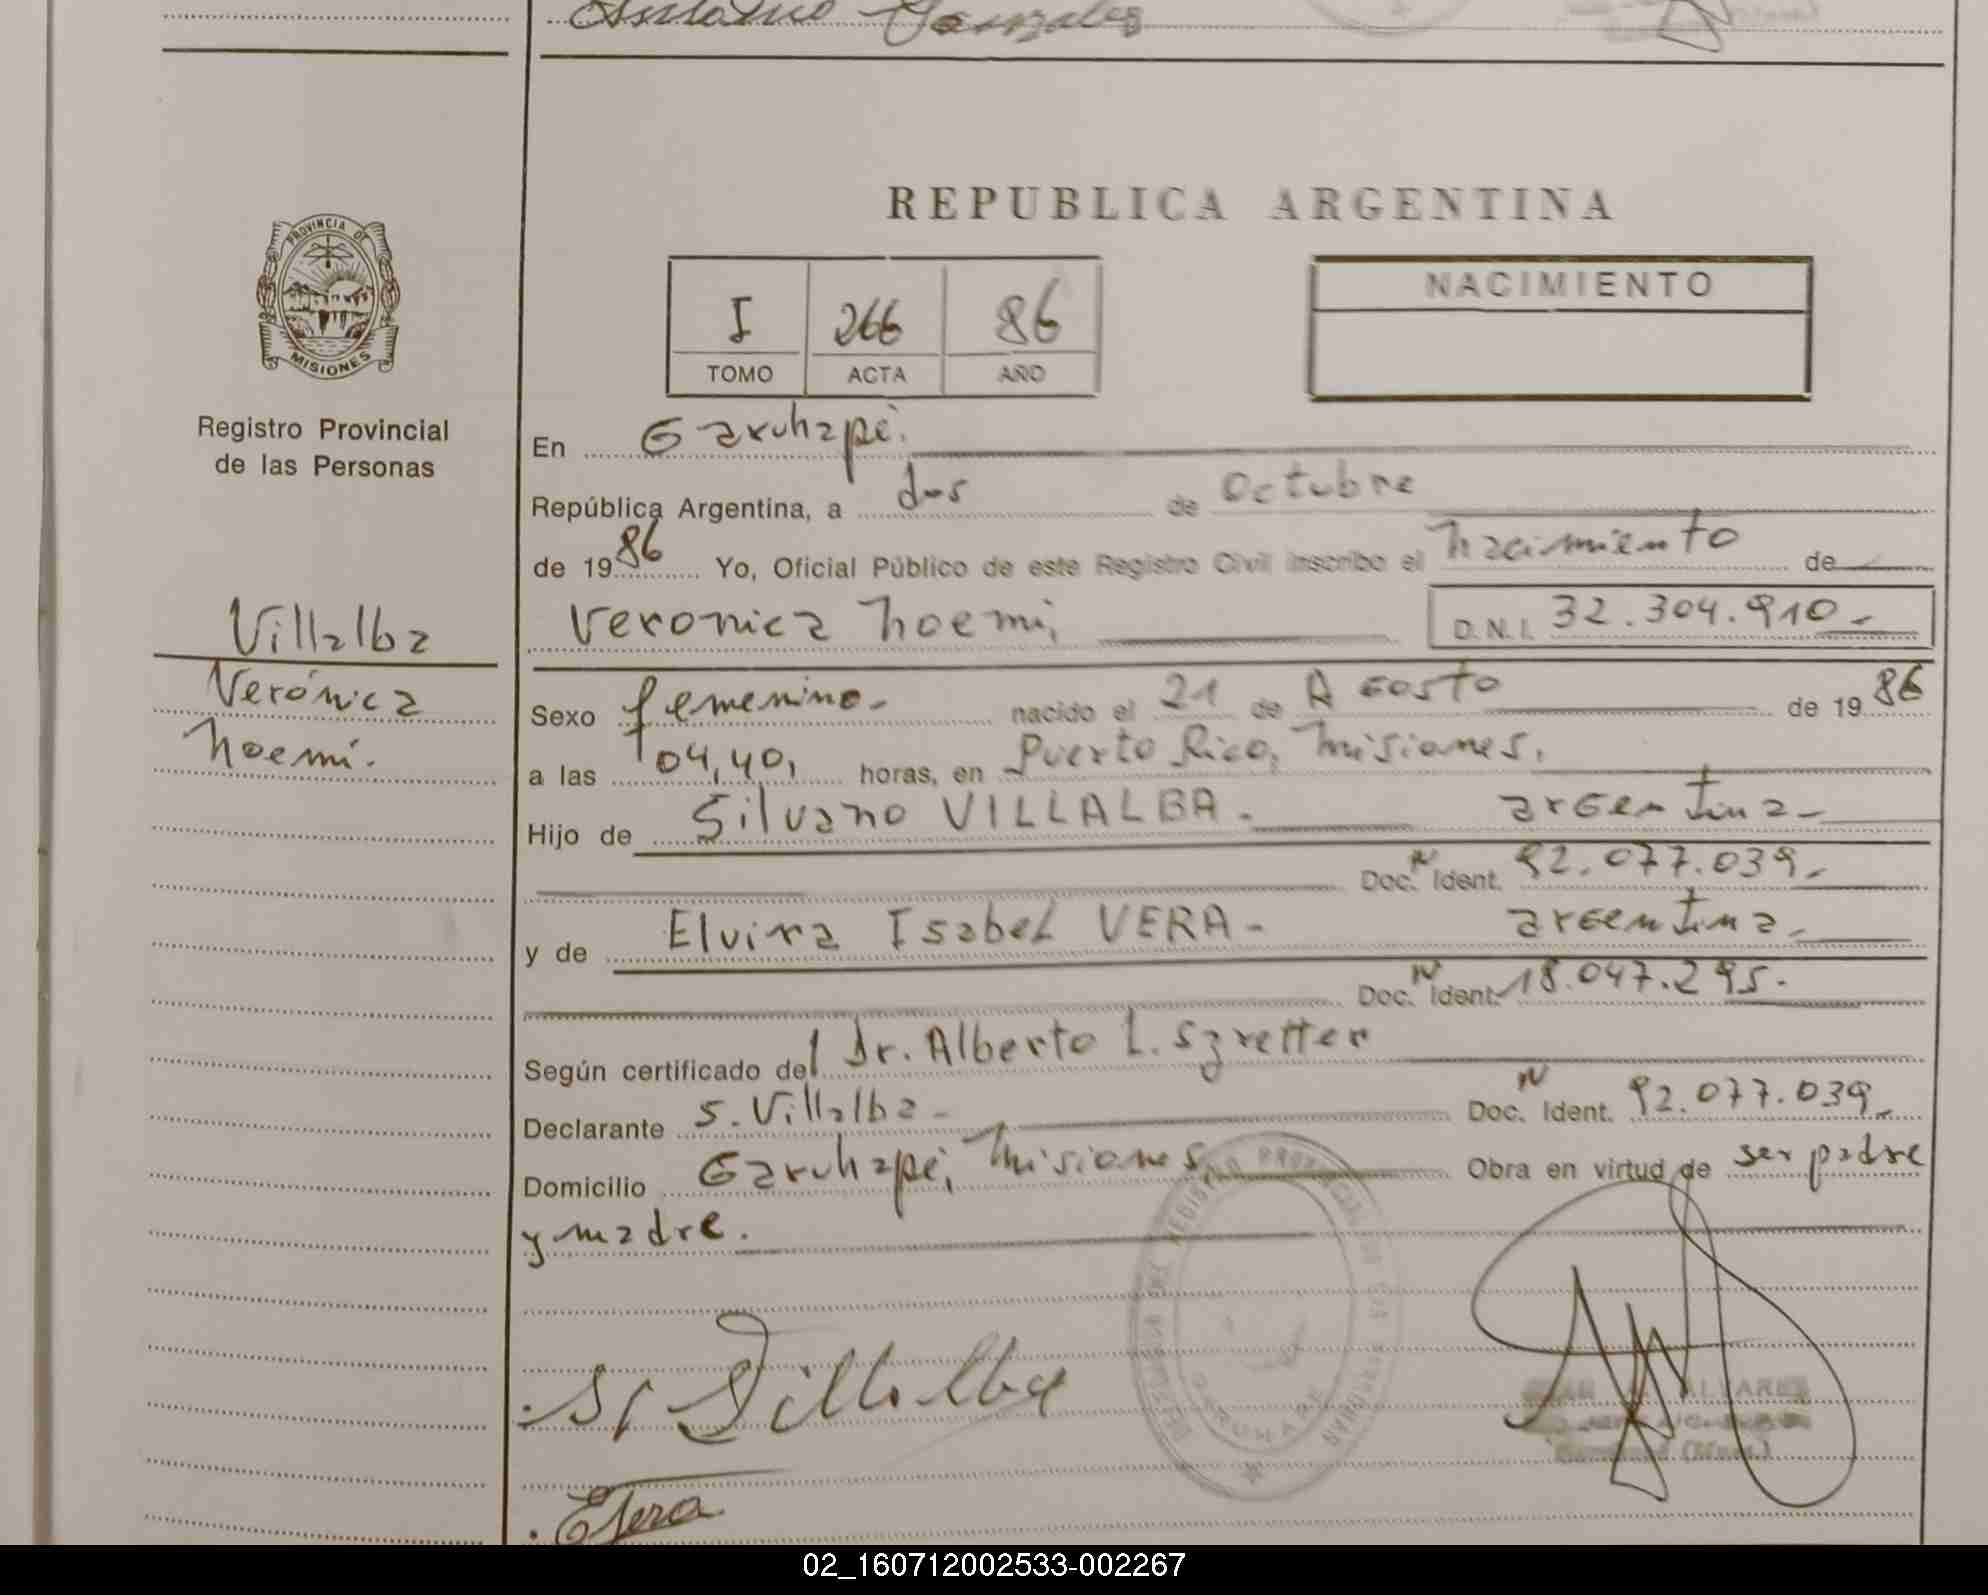 Antonio Gonzalez
REPUBLICA ARGENTINA
PROVINCIA DE
MISIONES
Registro Provincial
de las Personas
I 266 86
TOMO ACTA AÑO
NACIMIENTO
En Garuhapé.
República Argentina, a dos de Octubre
de 1986 Yo, Oficial Público de este Registro Civil inscribo el nacimiento de
Veronica Noemi, D.N.I. 32.304.910-
Villalba
Verónica
Noemí.
Sexo femenino- nacido el 21 de Agosto de 1986
a las 04,40, horas, en Puerto Rico, Misiones.
Hijo de Silvano VILLALBA- argentina-
Doc. N Ident. 92.077.039-
y de Elvira Isabel VERA- argentina-
Doc. N Ident. 18.047.295-
Según certificado del Dr. Alberto L. Szretter
Declarante S. Villalba- Doc. N Ident. 92.077.039-
Domicilio Garuhapé, Misiones, Obra en virtud de ser padre
y madre.
S Villalba
GARUHAPE
ALVAREZ
EVera
02_160712002533-002267